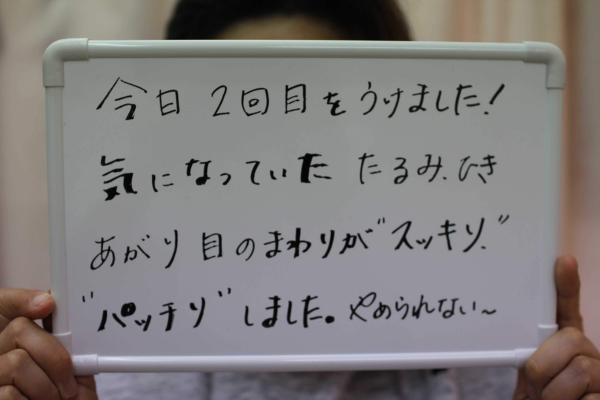 今日 2回目をうけました!
気になっていた たるみ、ひき
あがり 目のまわりが"スッキリ、"
"パッチリ"しました。やめられない～